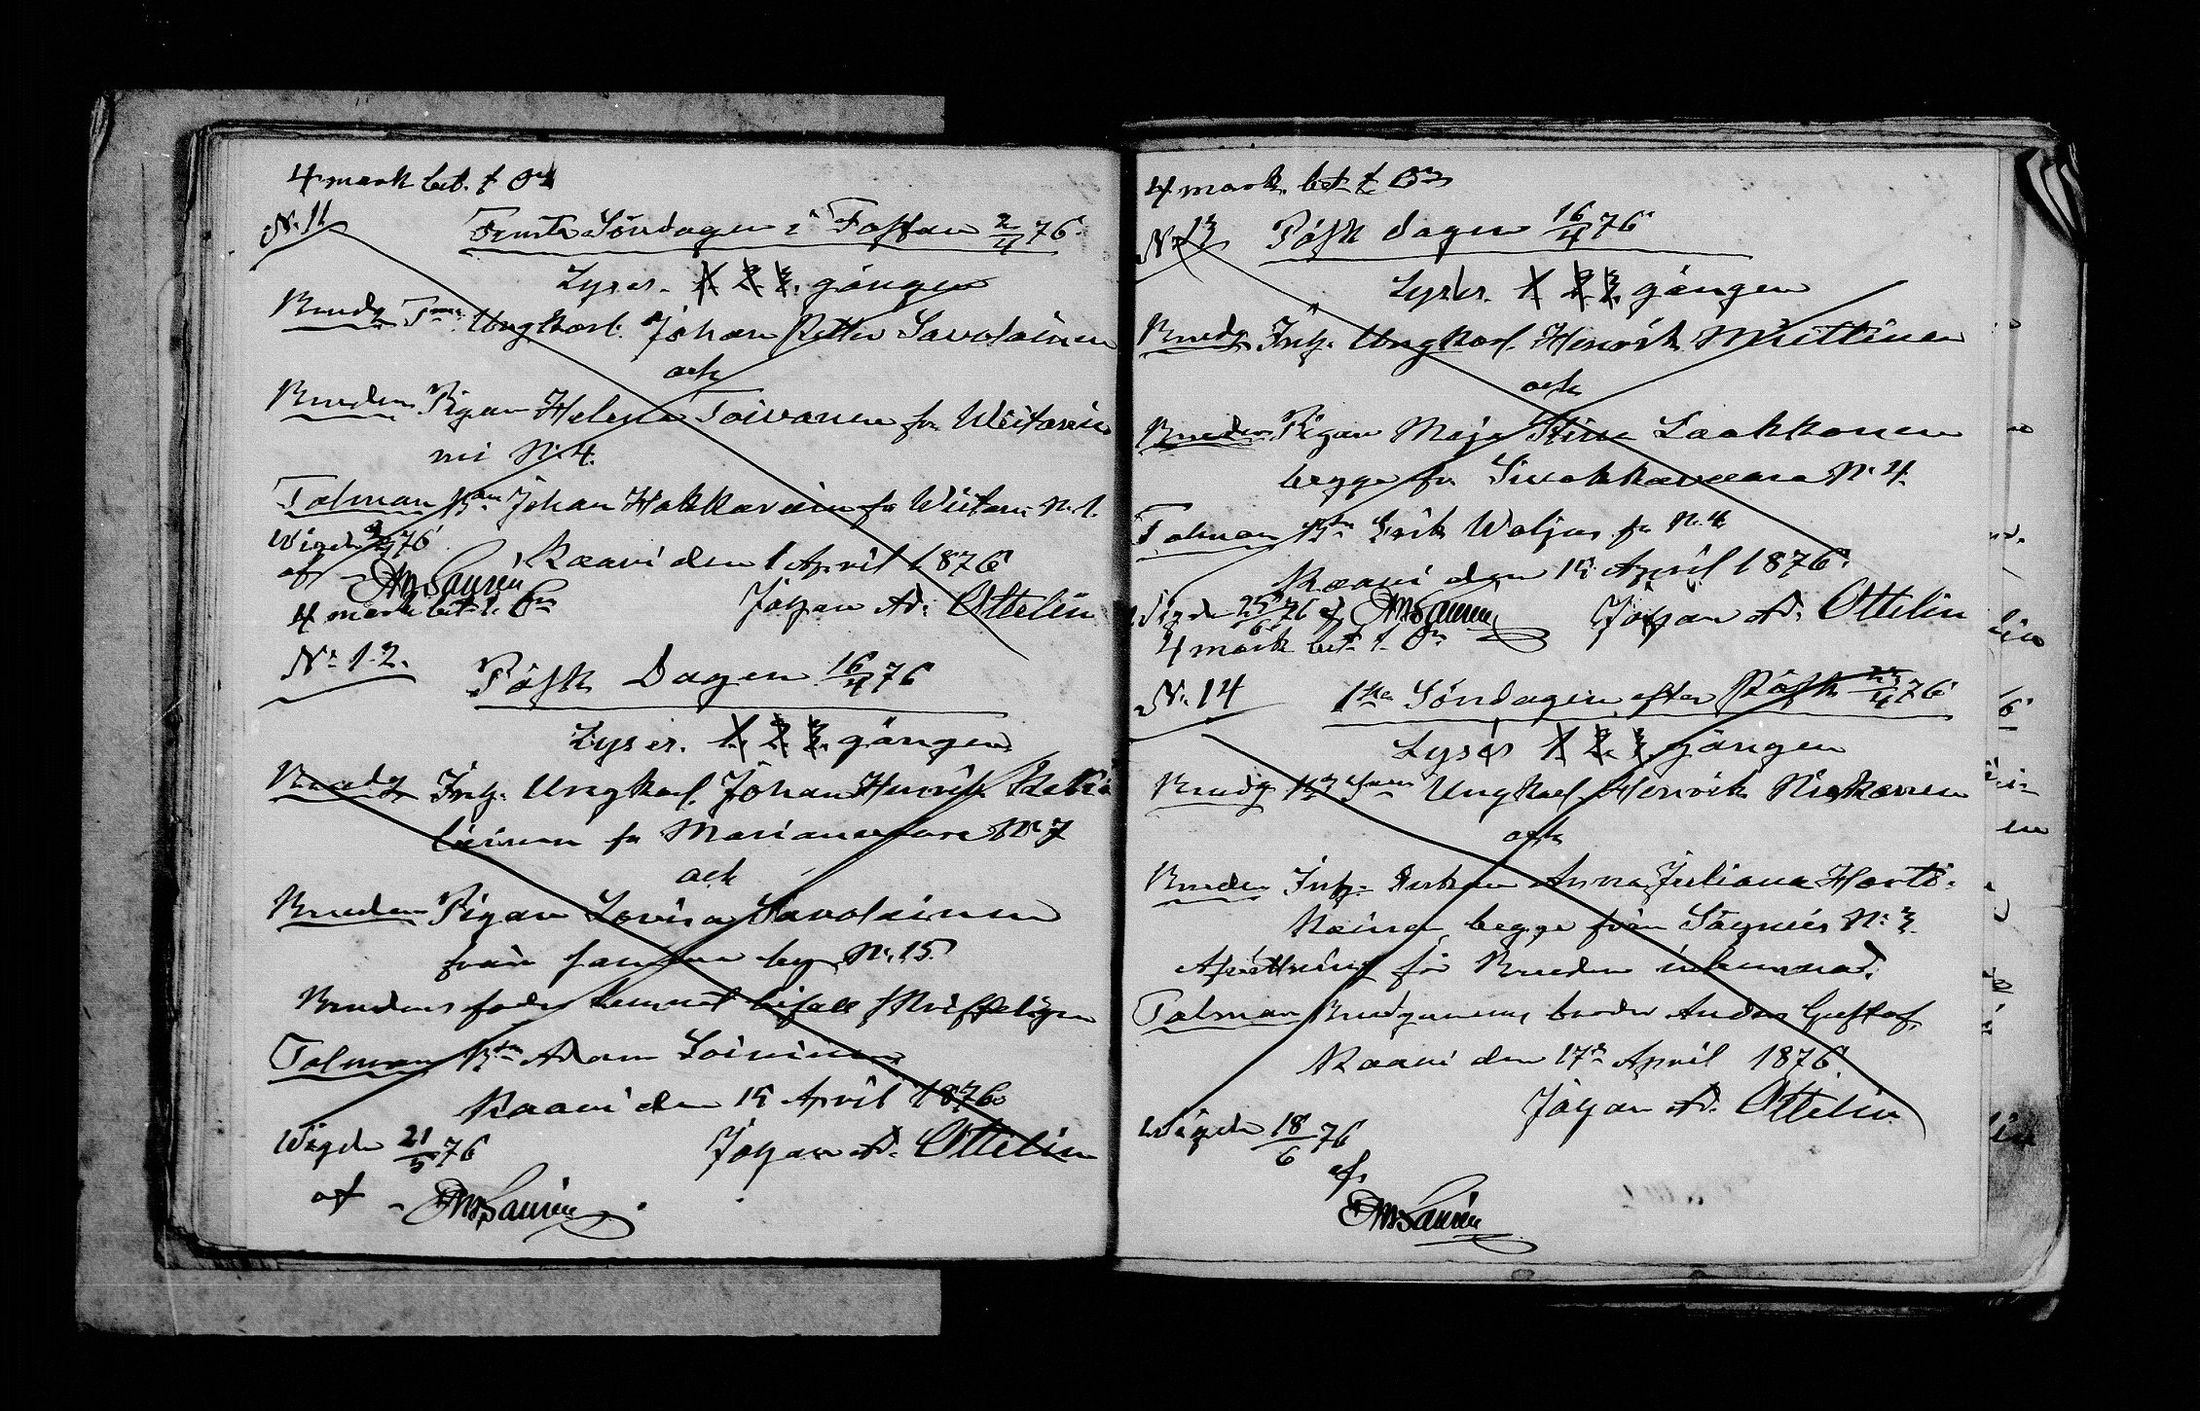 4 mark bet. t. Or
N: 11
Femte Söndagen i Fastan 2/4 76
Lyses. 1. 2. 3. gången
Brudg. Ungkarl. Johan Petter Savolainen
och
Bruden Pigan Helena Toivanen fr. Wiitanie
mi N: 4.
Talman Bn Johan Hakkarain fr Wiitani N: 1.
Wigde 76
af
Kaavi den 1 April 1876
4 mark bet. t.
Johan Ad: Ottelin
N: 12.
Påsk Dagen 16/4 76
Lyses. 1. 2. 3. gången
Brudg Inh. Ungkarl. Johan Henrik
lainen fr Marianvaara N: 7
och
Bruden Pigan Lovisa Savolainen
från samma by N: 15
Brudens fader lemnat bifall skriftligen
Talman Bn Adam Soininen
Kaavi den 15 April 1876
Wigde 21/5 76
Johan Ad. Ottelin
af
4 mark. bet t. Or
N: 13
Påsk dagen 16/4 76
Lyses. 1 2. 3. gången
Brudg. Inh. Ungkarl. Henrik Miettinen
och
Bruden Pigan Maja Stina Laakkonen
begge fr. Sivakkavaara N: 4.
Talman Bn Erik Waljus fr N: 4
Kaavi den 15 April 1876
Wigde 25/6 76 af
Johan Ad. Ottelin
4 mark bet. t. Or
N: 14
1sta Söndagen efter Påsk 23/4 76
Lyses 1. 2. 3. gången
Brudg Ungkarl Henrik Niskanen
och
Bruden Inh. Enkan Anna Juliana Harti-
kainen begge från Säyneis N: 3.
Afvittring för Bruden inlemnad.
Talman Brudgummens broder Anders Gustaf.
Kaavi den 17 April 1876.
Johan Ad. Ottelin
Wigde 18/6 76
af